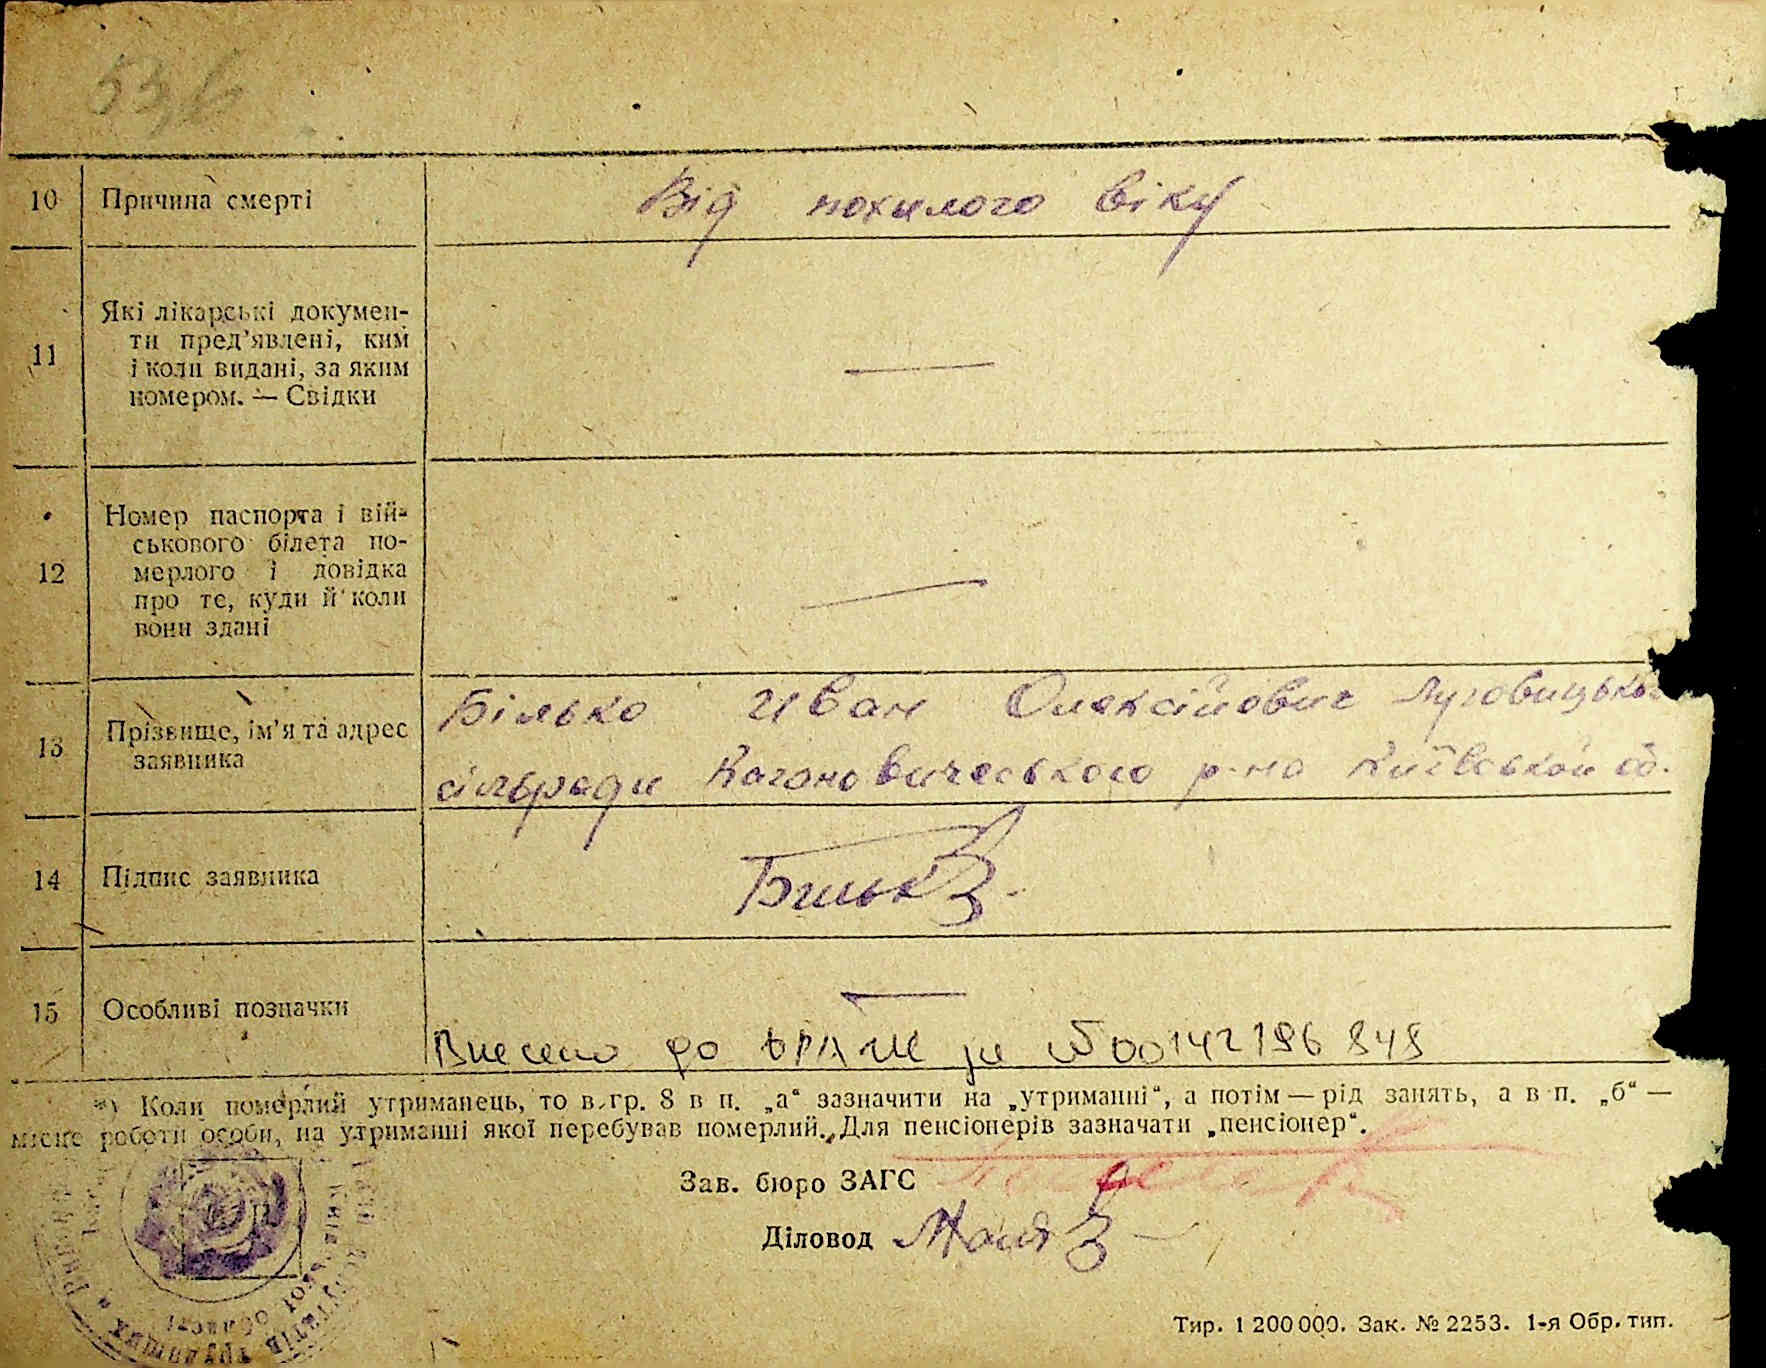 10 Причина смерті Від похилого віку
11 Які лікарські докумен-
ти пред’явлені, ким
і коли видані, за яким
номером. — Свідки —
12 Номер паспорта і вій-
ськового білета по-
мерлого і довідка
про те, куди й коли
вони здані —
13 Прізвище, ім’я та адрес
заявника
Білько Иван Олексійович Луговицької
сільради Кагановичеського р-на Київськой об.
14 Підпис заявника Билько
15 Особливі позначки —
Внесено до ДРАЦС за № 00142196848
*) Коли померлий утриманець, то в гр. 8 в п. „а“ зазначити на „утриманні“, а потім — рід занять, а в п. „б“ —
місце роботи особи, на утриманні якої перебував померлий. Для пенсіонерів зазначати „пенсіонер“.
Зав. бюро ЗАГС
Діловод
Тир. 1 200 000. Зак. № 2253. 1-я Обр. тип.